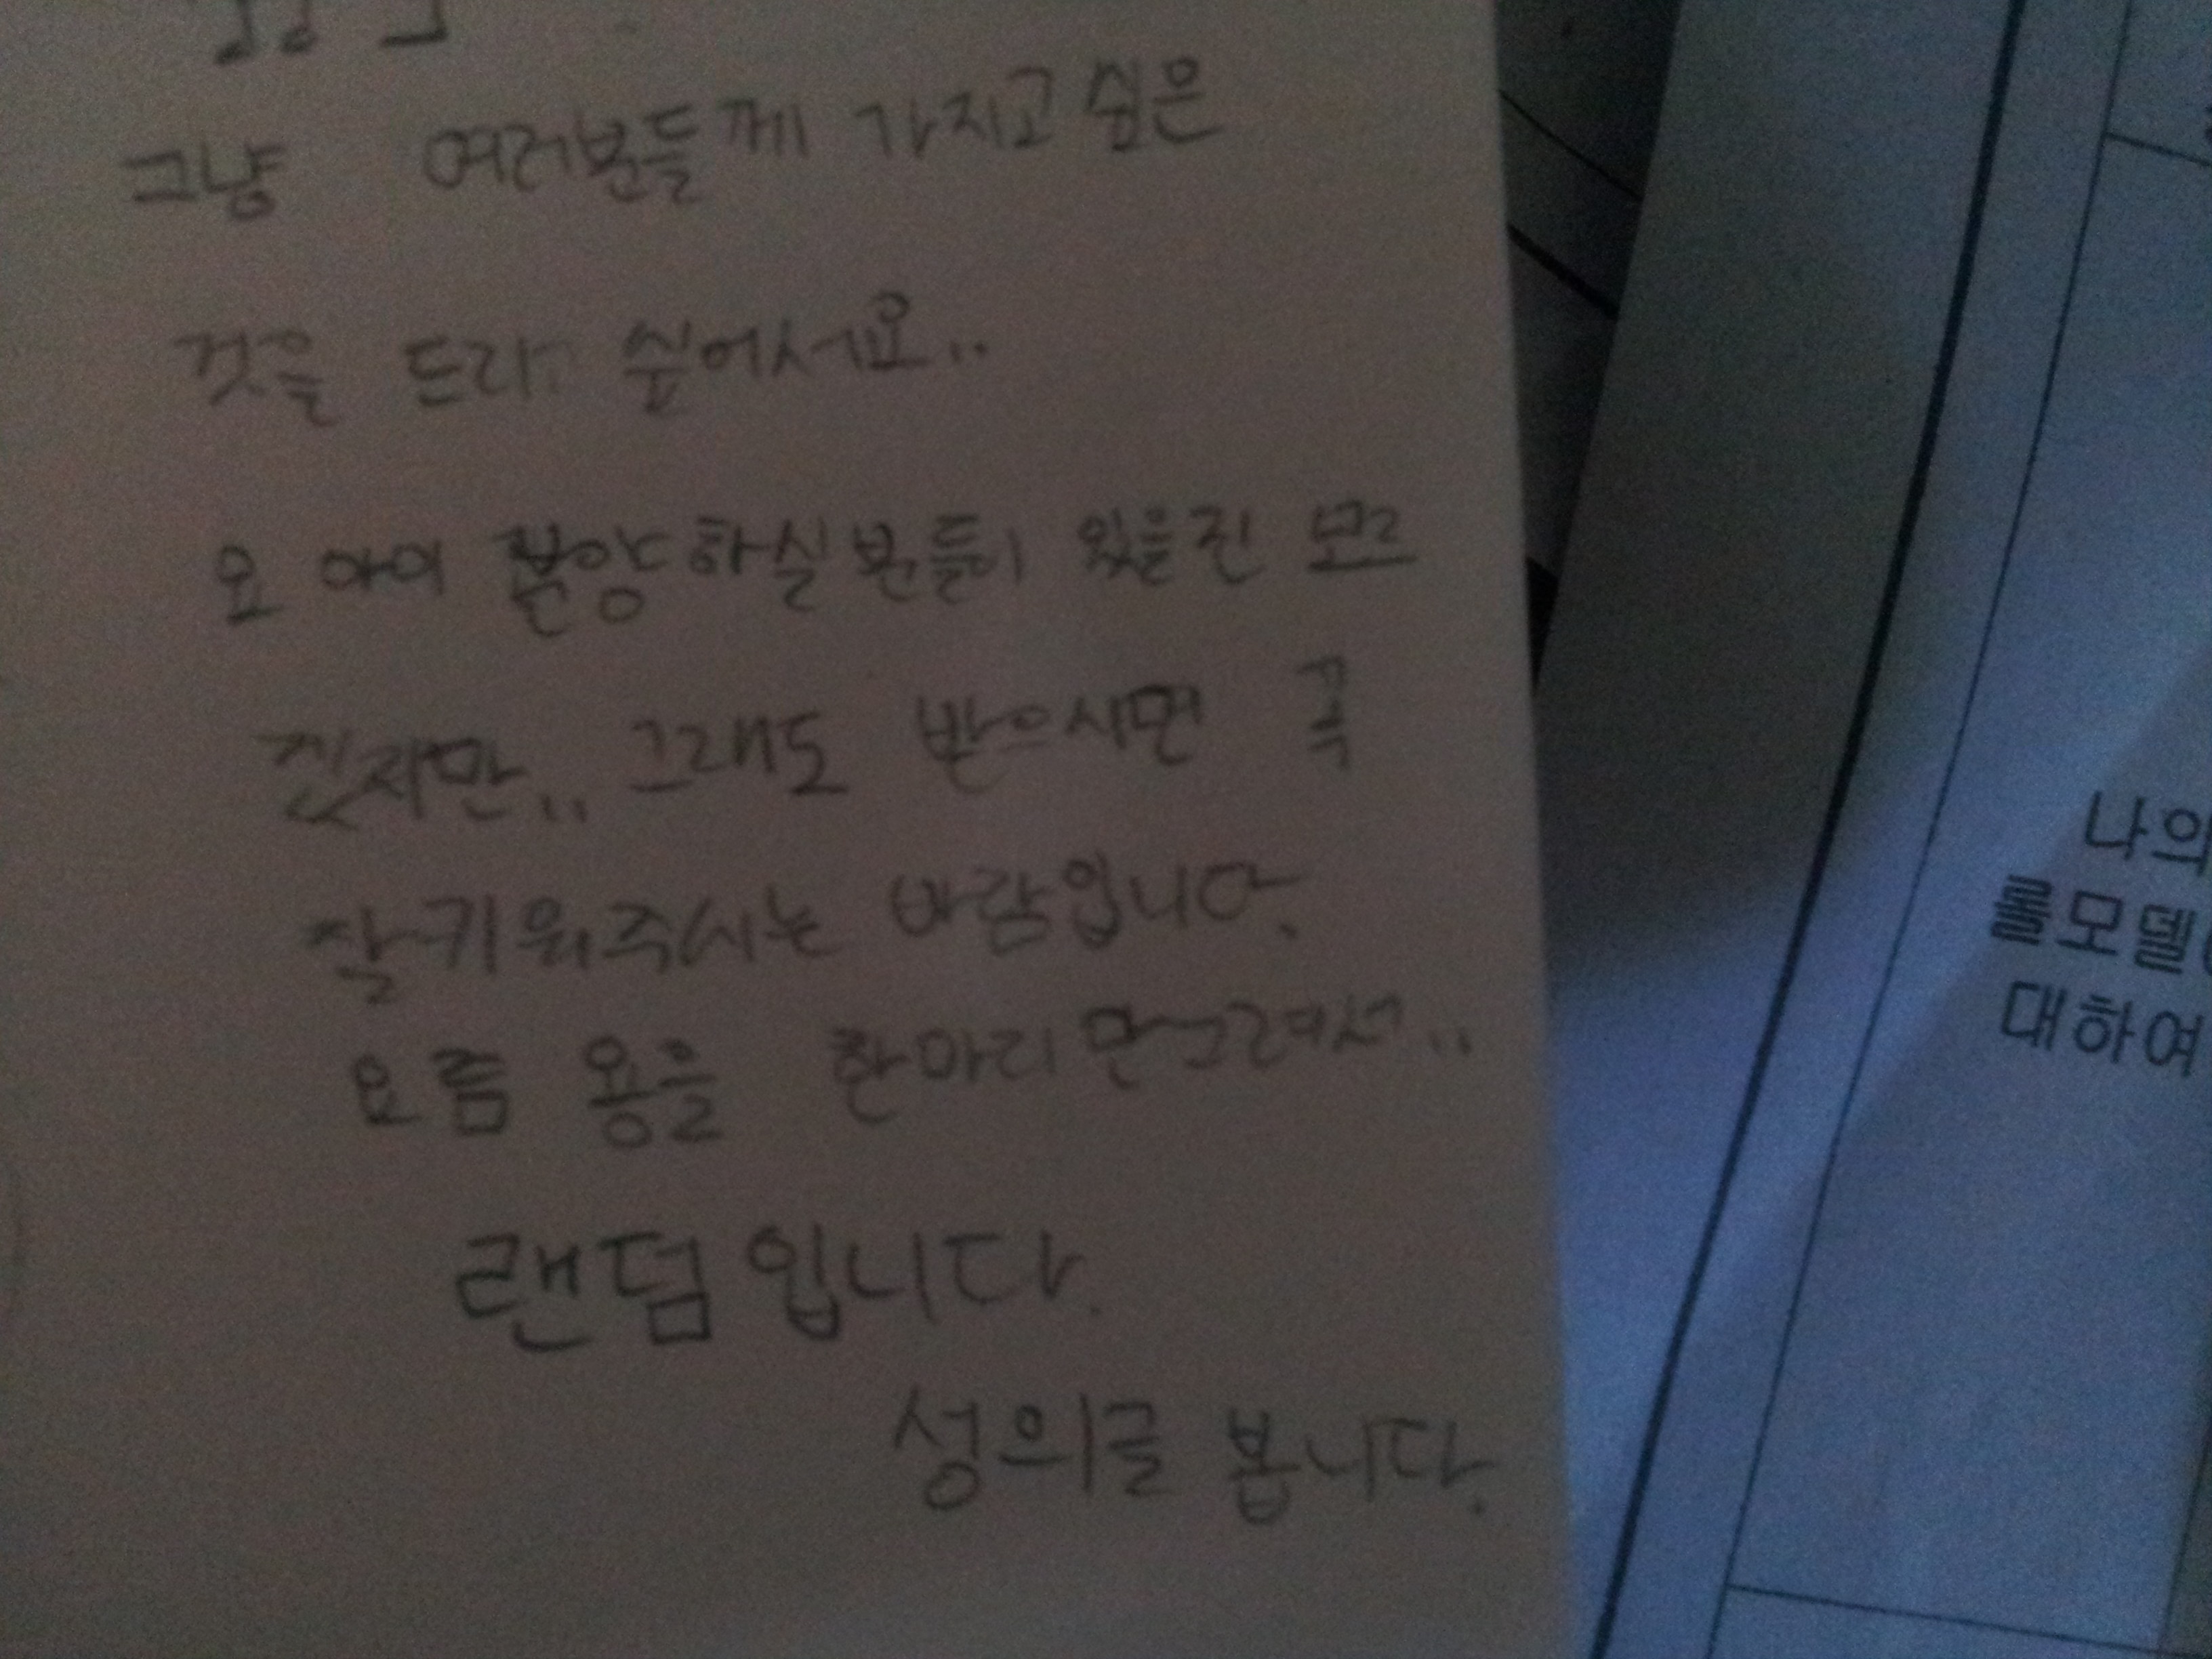 그냥 여러분들께 가지고 싶은
것을 드리고 싶어서요..
요 아이 분양하실분들이 있을진 모르
겠지만.. 그래도 받으시면 꼭
잘키워주시는 바람입니다.
요즘 용을 한마리 만그려서..
랜덤입니다.
성의글 봅니다.
나의
롤모델
대하여